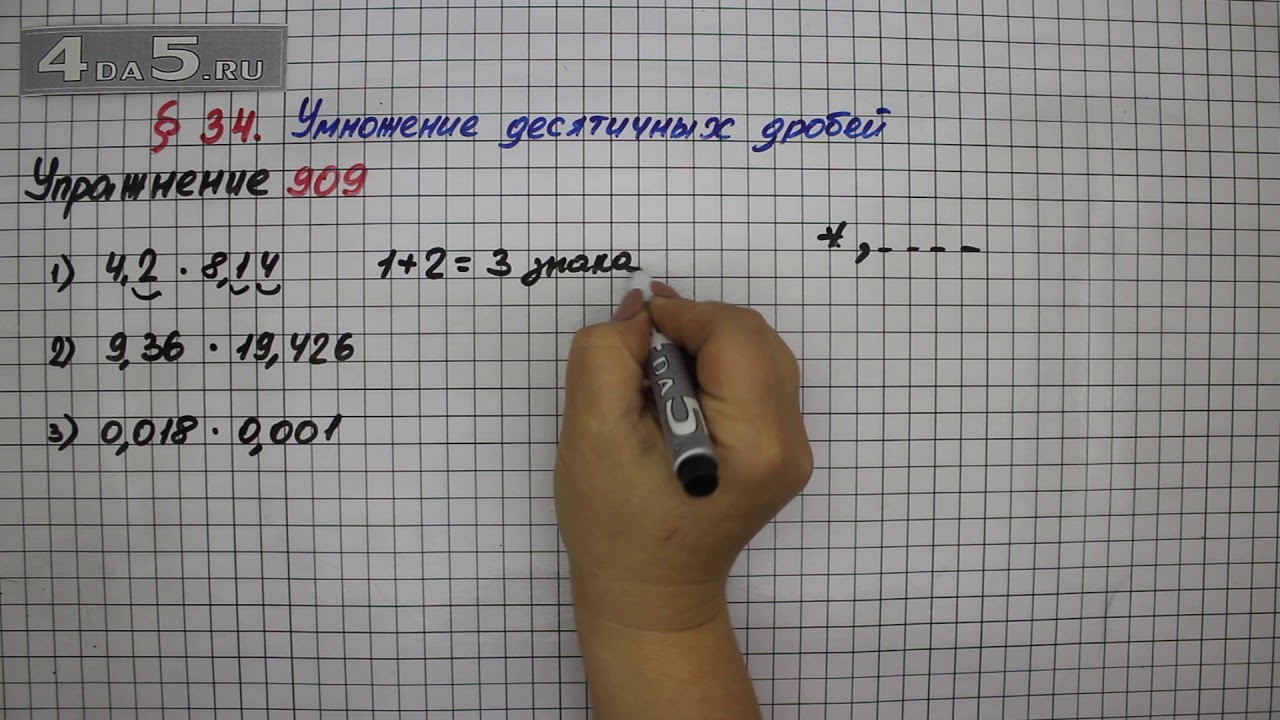 4DA5.RU
§ 34. Умножение десятичных дробей
Упражнение 909
1) 4,2 · 8,14 1+2=3 знака
* , _ _ _ _
2) 9,36 · 19,426
3) 0,018 · 0,001
4DA5